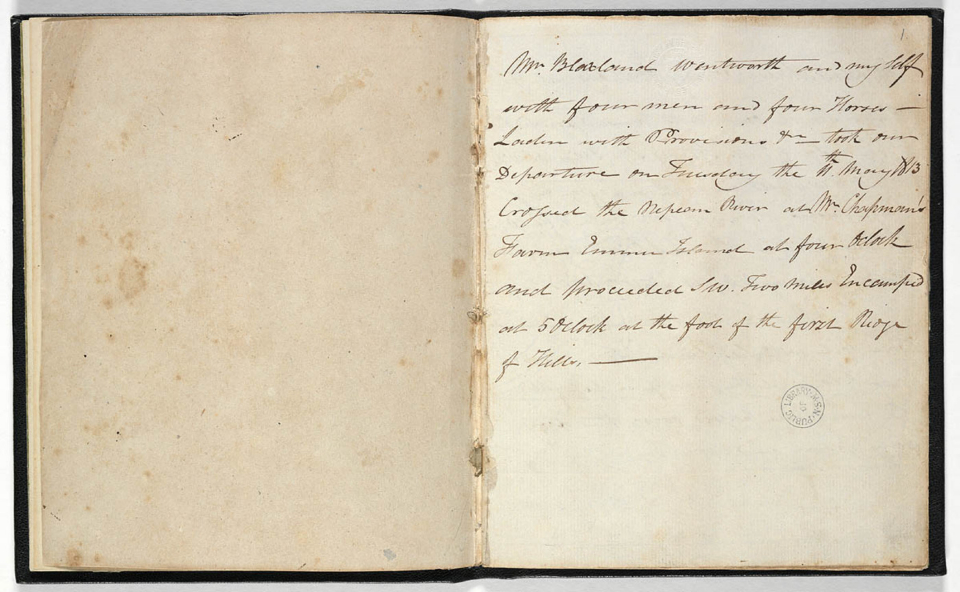 1
Mr. Blaxland Wentworth and myself
with four men and four Horses —
Laden with Provisions &c — took our
Departure on Tuesday the 11th. May 1813
Crossed the Nepean River at Mr. Chapman's
Farm Emmu Island at four Oclock
and proceeded SW. Two miles Encamped
at 5 Oclock at the foot of the first Ridge
of Hills. —
PUBLIC LIBRARY N.S.W.